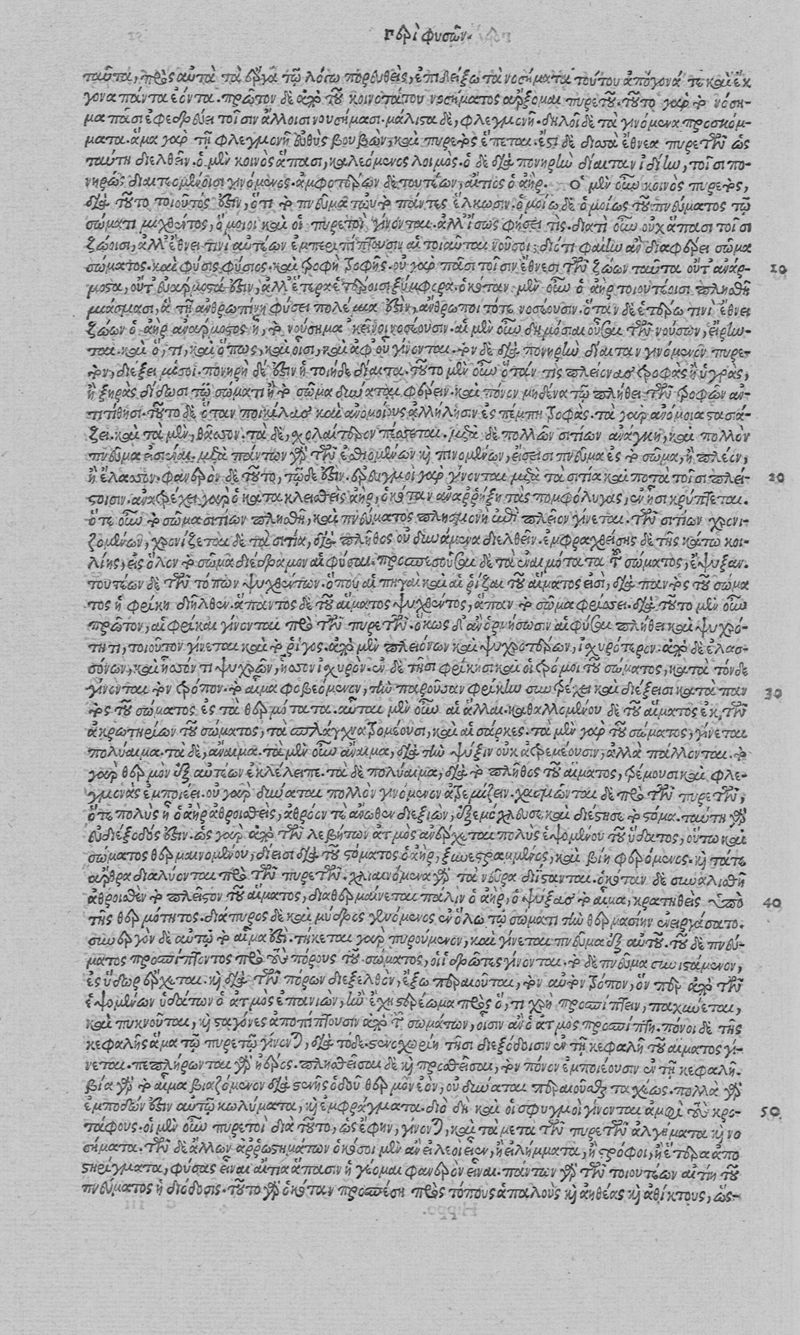 Περὶ φυσῶν.
ταῦτα, πρὸς αὐτὰ τὰ ἔργα τῷ λόγῳ πορευθεὶς, ἐπιδείξω τὰ νοσήματα τούτου ἀπόγονά τε καὶ ἔκ
γονα πάντα ἐόντα. πρῶτον δὲ ἀπὸ τοῦ κοινοτάτου νοσήματος ἄρξομαι πυρετοῦ. τοῦτο γὰρ τὸ νόση-
μα πᾶσι ἐφεδρεύει τοῖσιν ἄλλοισι νουσήμασι. μάλιστα δὲ, φλεγμονῇ. δηλοῖ δὲ τὰ γινόμενα προσκόμ-
ματα. ἅμα γὰρ τῇ φλεγμονῇ εὐθὺς βουβὼν, καὶ πυρετὸς ἕπεται. ἔστι δὲ δισσὰ ἔθνεα πυρετῶν ὡς
ταύτῃ διελθεῖν. ὁ μὲν κοινὸς ἅπασι, καλεόμενος λοιμός. ὁ δὲ διὰ πονηρὴν δίαιταν ἰδίῃ, τοῖσι πο-
νηρῶς διαιτεομένοισι γινόμενος. ἀμφοτέρων δὲ τουτέων, αἴτιος ὁ ἀήρ. ὁ μὲν οὖν κοινὸς πυρετὸς,
διὰ τοῦτο τοιοῦτός ἐστιν, ὅτι τὸ πνεῦμα τωὐτὸ πάντες ἕλκουσιν. ὁμοίου δὲ ὁμοίως τοῦ πνεύματος τῷ
σώματι μιχθέντος, ὅμοιοι καὶ οἱ πυρετοὶ γίνονται. ἀλλ' ἴσως φήσει τίς. διατί οὖν οὐχ ἅπασι τοῖσι
ζώοισι, ἀλλ' ἔθνει τινὶ αὐτέων ἐμπεριπίπτουσιν αἱ τοιαῦται νοῦσοι; διότι φαίην ἂν διαφέρει σῶμα
σώματος. καὶ φύσις φύσιος. καὶ τροφὴ τροφῆς. οὐ γὰρ πᾶσι τοῖσιν ἔθνεσι τῶν ζώων ταῦτα οὔτ' ἀνάρ- 10
μοστα, οὔτ' εὐάρμοστά ἐστιν, ἀλλ' ἕτερα ἑτέροισι ξύμφορα. ὁκόταν μὲν οὖν ὁ ἀὴρ τοιουτέοισι πλησθῇ
μιάσμασι, ἃ τῇ ἀνθρωπίνῃ φύσει πολέμιά ἐστιν, ἄνθρωποι τότε νοσέουσιν. ὅταν δὲ ἑτέρῳ τινὶ ἔθνει
ζώων ὁ ἀὴρ ἀνάρμοστος ᾖ, τὸ νούσημα κεῖνοι νοσέουσιν. αἱ μὲν οὖν δημόσιαι οὖσαι τῶν νούσων, εἴρην-
ται. καὶ ὅ, τι, καὶ ὅπως, καὶ οἷσι, καὶ ἀφ' οὗ γίνονται. τὸν δὲ διὰ πονηρὴν δίαιταν γινόμενον πυρε-
τὸν, διέξειμί σοι. πονηρὴ δέ ἐστιν ἡ τοιήδε δίαιτα. τοῦτο μὲν οὖν ὅταν τίς πλείονας τροφὰς ἢ ὑγρὰς,
ἢ ξηρὰς διδῷ τῷ σώματι ἢ τὸ σῶμα δύναται φέρειν. καὶ πόνον μηδένα τῷ πλήθει τῶν τροφῶν ἀν-
τιτιθῇσι. τοῦτο δὲ ὅταν ποικίλας καὶ ἀνομοίους ἀλλήλῃσιν ἐσπέμπῃ τροφάς. τὰ γὰρ ἀνόμοια στασιά-
ζει. καὶ τὰ μὲν, θᾶσσον. τὰ δὲ, σχολαίτερον πέσσεται. μετὰ δὲ πολλῶν σιτίων ἀνάγκη, καὶ πολλὸν
πνεῦμα εἰσιέναι. μετὰ πάντων γὰρ τῶν ἐσθιομένων καὶ πινομένων, εἴσεισι πνεῦμα ἐς τὸ σῶμα, ἢ πλέον,
ἢ ἔλασσον. φανερὸν δὲ τοῦτο, τῷδέ ἐστιν. ἐρευγμοὶ γὰρ γίνονται μετὰ τὰ σιτία καὶ ποτὰ τοῖσι πλεί- 20
στοισιν. ἀνατρέχει γὰρ ὁ κατακλεισθεὶς ἀὴρ, ὁκόταν ἀναῤῥήξῃ τὰς πομφόλυγας, ἐν ᾗσι κρύπτεται.
ὅτε οὖν τὸ σῶμα σιτίων πλησθῇ, καὶ πνεύματος πλησμονὴ ἐπὶ πλεῖον γίνεται. τῶν σιτίων χρονι-
ζομένων, χρονίζεται δὲ τὰ σιτία, διὰ πλῆθος οὐ δυνάμενα διελθεῖν. ἐμφραχθείσης δὲ τῆς κάτω κοι-
λίης, εἰς ὅλον τὸ σῶμα διέδραμον αἱ φύσαι. προσπεσοῦσαι δὲ τὰ ἐναιμότατα τοῦ σώματος, ἔψυξαν.
τουτέων δὲ τῶν τόπων ψυχθέντων. ὅπου αἱ πηγαὶ καὶ αἱ ῥίζαι τοῦ αἵματος εἰσι, διὰ παντὸς τοῦ σώμα
τος ἡ φρίκη διῆλθεν. ἅπαντος δὲ τοῦ αἵματος ψυχθέντος, ἅπαν τὸ σῶμα φρίσσει. διὰ τοῦτο μὲν οὖν
πρῶτον, αἱ φρῖκαι γίνονται πρὸ τῶν πυρετῶν. ὅκως δ' ἂν ὁρμήσωσιν αἱ φῦσαι πλήθει καὶ ψυχρό-
τητι, τοιοῦτον γίνεται καὶ τὸ ῥῖγος. ἀπὸ μὲν πλειόνων καὶ ψυχροτέρων, ἰσχυρότερον. ἀπὸ δὲ ἐλασ-
σόνων, καὶ ἧσσόν τι ψυχρῶν, ἧσσον ἰσχυρόν. ἐν δὲ τῇσι φρίκῃσι καὶ οἱ τρόμοι τοῦ σώματος, κατὰ τόνδε
γίνονται τὸν τρόπον. τὸ αἷμα φοβεόμενον, τὴν παροῦσαν φρίκην συντρέχει καὶ διέξεισι κατὰ πᾶν 30
τὸς τοῦ σώματος ἐς τὰ θερμότατα. αὗται μὲν οὖν αἱ ἄλλαι. καθαλλομένου δὲ τοῦ αἵματος ἐκ τῶν
ἀκρωτηρίων τοῦ σώματος, τὰ σπλάγχνα τρομέουσι, καὶ αἱ σάρκες. τὰ μὲν γὰρ τοῦ σώματος, γίνεται
πολύαιμα. τὰ δὲ, ἄναιμα. τὰ μὲν οὖν ἄναιμα, διὰ τὴν ψῦξιν οὐκ ἀτρεμέουσιν, ἀλλὰ πάλλονται. τὸ
γὰρ θερμὸν ἐξ αὐτέων ἐκλέλειπε. τὰ δὲ πολύαιμα, διὰ τὸ πλῆθος τοῦ αἵματος, τρέμουσι καὶ φλε-
γμονὰς ἐμποιέει. οὐ γὰρ δύναται πολλὸν γινόμενον ἀτρεμίζειν. χασμῶνται δὲ πρὸ τῶν πυρετῶν,
ὅτε πολὺς ἢ ὁ ἀὴρ ἀθροισθεὶς, ἀθρόον τε ἄνωθεν διεξιὼν, ἐξεμόχλευσε καὶ διέστησε τὸ στόμα. ταύτῃ γὰρ
εὐδιέξοδός ἐστιν. ὡς γὰρ ἀπὸ τῶν λεβήτων ἀτμὸς ἀνέρχεται πολὺς ἑψομένου τοῦ ὕδατος, οὕτω καὶ
σώματος θερμαινομένου, δίεισι διὰ τοῦ στόματος ὁ ἀὴρ, ξυνεστραμμένος, καὶ βίῃ φερόμενος. καὶ τά τε
ἄρθρα διαλύονται πρὸ τῶν πυρετῶν. χλιαινόμενα γὰρ τὰ νεῦρα διΐστανται. ὁκόταν δὲ συναλισθῇ
ἀθροισθὲν τὸ πλεῖστον τοῦ αἵματος, διαθερμαίνεται πάλιν ὁ ἀὴρ, ὁ ψύξας τὸ αἷμα, κρατηθεὶς ὑπὸ 40
τῆς θερμότητος. διάπυρος δὲ καὶ μύδρος γενόμενος ἐν ὅλῳ τῷ σώματι τὴν θερμασίην ἐνειργάσατο.
συνεργὸν δὲ αὐτῷ τὸ αἷμά ἐστι. τήκεται γὰρ πυρούμενον, καὶ γίνεται πνεῦμα ἐξ αὐτοῦ. τοῦ δὲ πνεύ-
ματος προσπίπτοντος πρὸς τοὺς πόρους τοῦ σώματος, οἱ ἱδρῶτες γίνονται. τὸ δὲ πνεῦμα συνιστάμενον,
ἐς ὕδωρ ἔρχεται. καὶ διὰ τῶν πόρων διεξελθὸν, ἔξω περαιοῦται, τὸν αὐτὸν τρόπον, ὅν περ ἀπὸ τῶν
ἑψομένων ὑδάτων ὁ ἀτμὸς ἐπανιὼν, ἢν ἔχῃ στερέωμα πρὸς ὅ, τι χρὴ προσπίπτειν, παχύνεται,
καὶ πυκνοῦται, καὶ σταγόνες ἀποπίπτουσιν ἀπὸ τῶν σωμάτων, οἷσιν ἂν ὁ ἀτμὸς προσπίπτῃ. πόνοι δὲ τῆς
κεφαλῆς ἅμα τῷ πυρετῷ γίνονται, διὰ τόδε. στενοχωρίη τῇσι διεξόδοισιν ἐν τῇ κεφαλῇ τοῦ αἵματος γί-
νεται. πέπληρωνται γὰρ ἠέρος. πλησθεῖσαι δὲ καὶ πρησθεῖσαι, τὸν πόνον ἐμποιέουσιν ἐν τῇ κεφαλῇ.
βίᾳ γὰρ τὸ αἷμα βιαζόμενον διὰ στενῆς ὁδοῦ θερμὸν ἐὸν, οὐ δύναται περαιοῦσθαι ταχέως. πολλὰ γὰρ
ἐμποδών ἐστιν αὐτῷ κωλύματα, καὶ ἐμφράγματα. διὸ δὴ καὶ οἱ σφυγμοὶ γίνονται ἀμφὶ τοὺς κρο- 50
τάφους. οἱ μὲν οὖν πυρετοὶ διὰ τοῦτο, ὡς ἔφην, γίνονται, καὶ τὰ μετὰ τῶν πυρετῶν ἀλγήματα καὶ νο
σήματα. τῶν δὲ ἄλλων ἀῤῥωστημάτων ὁκόσοι μὲν ἂν εἰλεοὶ εἶεν, ἢ εἰλήμματα, ἢ στρόφοι, ἢ ἕτερα ἀπο
στηρίγματα, φύσας εἶναι αἴτια ἅπασιν ἡγέομαι φανερὸν εἶναι. πάντων γὰρ τῶν τοιουτέων αἰτίη τοῦ
πνεύματος ἡ διόδευσις. τοῦτο γὰρ ὁκόταν προσπέσῃ πρὸς τόπους ἁπαλοὺς καὶ ἀηθέας καὶ ἀθίκτους, ὥσ-